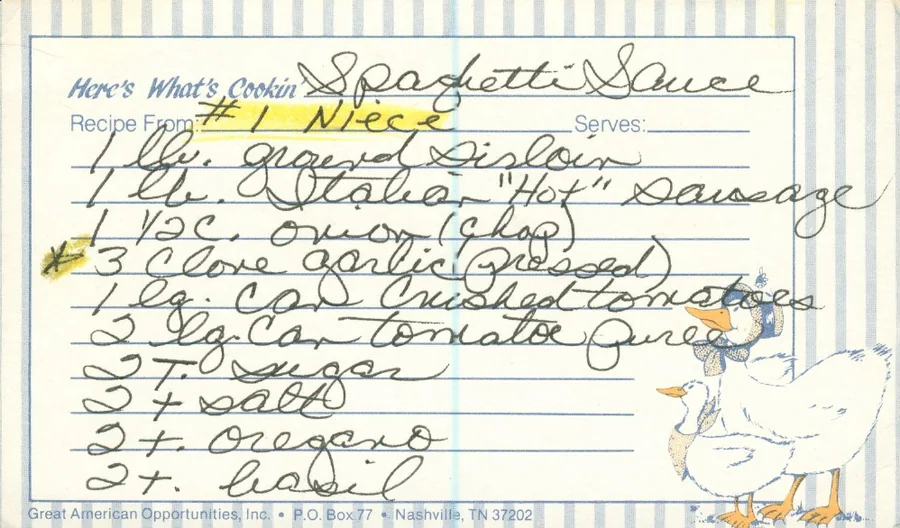 Here's What's Cookin Spaghetti Sauce
Recipe From: #1 Niece Serves:
1 lb. ground sirloin
1 lb. Italian "Hot" sausage
1 1/2 c. onion (chop)
* 3 clove garlic (pressed)
1 lg. can crushed tomatoes
2 lg. can tomatoe puree
2 T. sugar
2 t salt
2 t. oregano
2 t. basil
Great American Opportunities, Inc. • P.O. Box 77 • Nashville, TN 37202